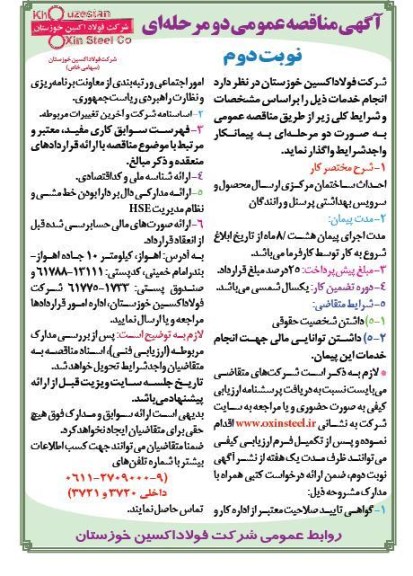 آگهی مناقصه عمومی دو مرحله‌ای
Khouzestan
شرکت فولاد اکسین خوزستان
Oxin Steel Co
شرکت فولاد اکسین خوزستان
(سهامی خاص)
نوبت دوم
شرکت فولاد اکسین خوزستان در نظر دارد
انجام خدمات ذیل را بر اساس مشخصات
و شرایط کلی زیر از طریق مناقصه عمومی
به صورت دو مرحله‌ای به پیمانکار
واجد شرایط واگذار نماید.
۱-شرح مختصر کار
احداث ساختمان مرکزی ارسال محصول و
سرویس بهداشتی پرسنل و رانندگان
۲-مدت پیمان:
مدت اجرای پیمان هشت/۸ ماه از تاریخ ابلاغ
شروع به کار توسط کارفرما می‌باشد.
۳-مبلغ پیش پرداخت: ۲۵درصد مبلغ قرارداد.
۴-دوره تضمین کار: یکسال شمسی می‌باشد.
۵-شرایط متقاضی:
۵-۱) داشتن شخصیت حقوقی
۵-۲) داشتن توانایی مالی جهت انجام
خدمات این پیمان.
* لازم به ذکر است شرکت‌های متقاضی
می‌بایست نسبت به دریافت پرسشنامه ارزیابی
کیفی به صورت حضوری و یا مراجعه به سایت
شرکت به نشانی www.oxinsteel.ir اقدام
نموده و پس از تکمیل فرم ارزیابی کیفی
می‌توانند ظرف مدت یک هفته از نشر آگهی
نوبت دوم، ضمن ارائه درخواست کتبی همراه با
مدارک مشروحه ذیل:
۱-گواهی تایید صلاحیت معتبر از اداره کار و
امور اجتماعی و رتبه‌بندی از معاونت برنامه‌ریزی
و نظارت راهبردی ریاست جمهوری.
۲-اساسنامه شرکت و آخرین تغییرات مربوطه.
۳-فهرست سوابق کاری مفید، معتبر و
مرتبط با موضوع مناقصه با ارائه قراردادهای
منعقده و ذکر مبالغ.
۴-ارائه شناسه ملی و کد اقتصادی.
۵-ارائه مدارکی دال بر دارا بودن خط مشی و
نظام مدیریت HSE
۶-ارائه صورت‌های مالی حسابرسی شده قبل
از انعقاد قرارداد.
به آدرس: اهواز، کیلومتر ۱۰ جاده اهواز-
بندر امام خمینی، کدپستی: ۱۳۱۱۱-۶۱۷۸۸ و
صندوق پستی: ۱۷۳۳-۶۱۷۷۵ شرکت
فولاد اکسین خوزستان، اداره امور قراردادها
مراجعه و یا ارسال نمایید.
لازم به توضیح است: پس از بررسی مدارک
مربوطه (ارزیابی فنی)، اسناد مناقصه به
متقاضیان واجد شرایط تحویل خواهد شد.
تاریخ جلسه سایت ویزیت قبل از ارائه
پیشنهاد می‌باشد.
بدیهی است ارائه سوابق و مدارک فوق هیچ
حقی برای متقاضیان ایجاد نخواهد کرد.
ضمنا متقاضیان می‌توانند جهت کسب اطلاعات
بیشتر با شماره تلفن‌های
۰۶۱۱-۲۹۰۹۰۰۰-۹)
داخلی ۳۷۲۰ و ۳۷۲۱)
تماس حاصل نمایند.
روابط عمومی شرکت فولاد اکسین خوزستان